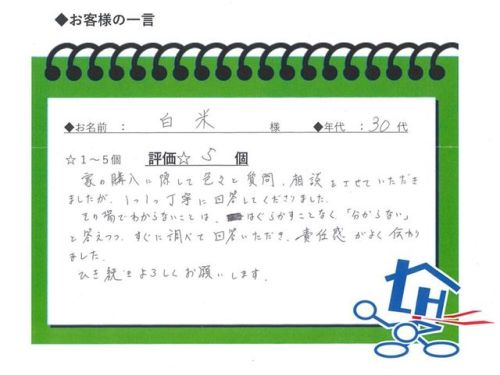 ◆お客様の一言
◆お名前 : 白米 様 ◆年代 : 30 代
☆1～5個 評価☆ 5 個
家の購入に際して色々と質問、相談をさせていただき
ましたが、1つ1つ丁寧に回答してくださりました。
その場でわからないことは、はぐらかすことなく、「分からない」
と答えつつ、すぐに調べて回答いただき、責任感がよく伝わり
ました。
ひき続きよろしくお願いします。
LH